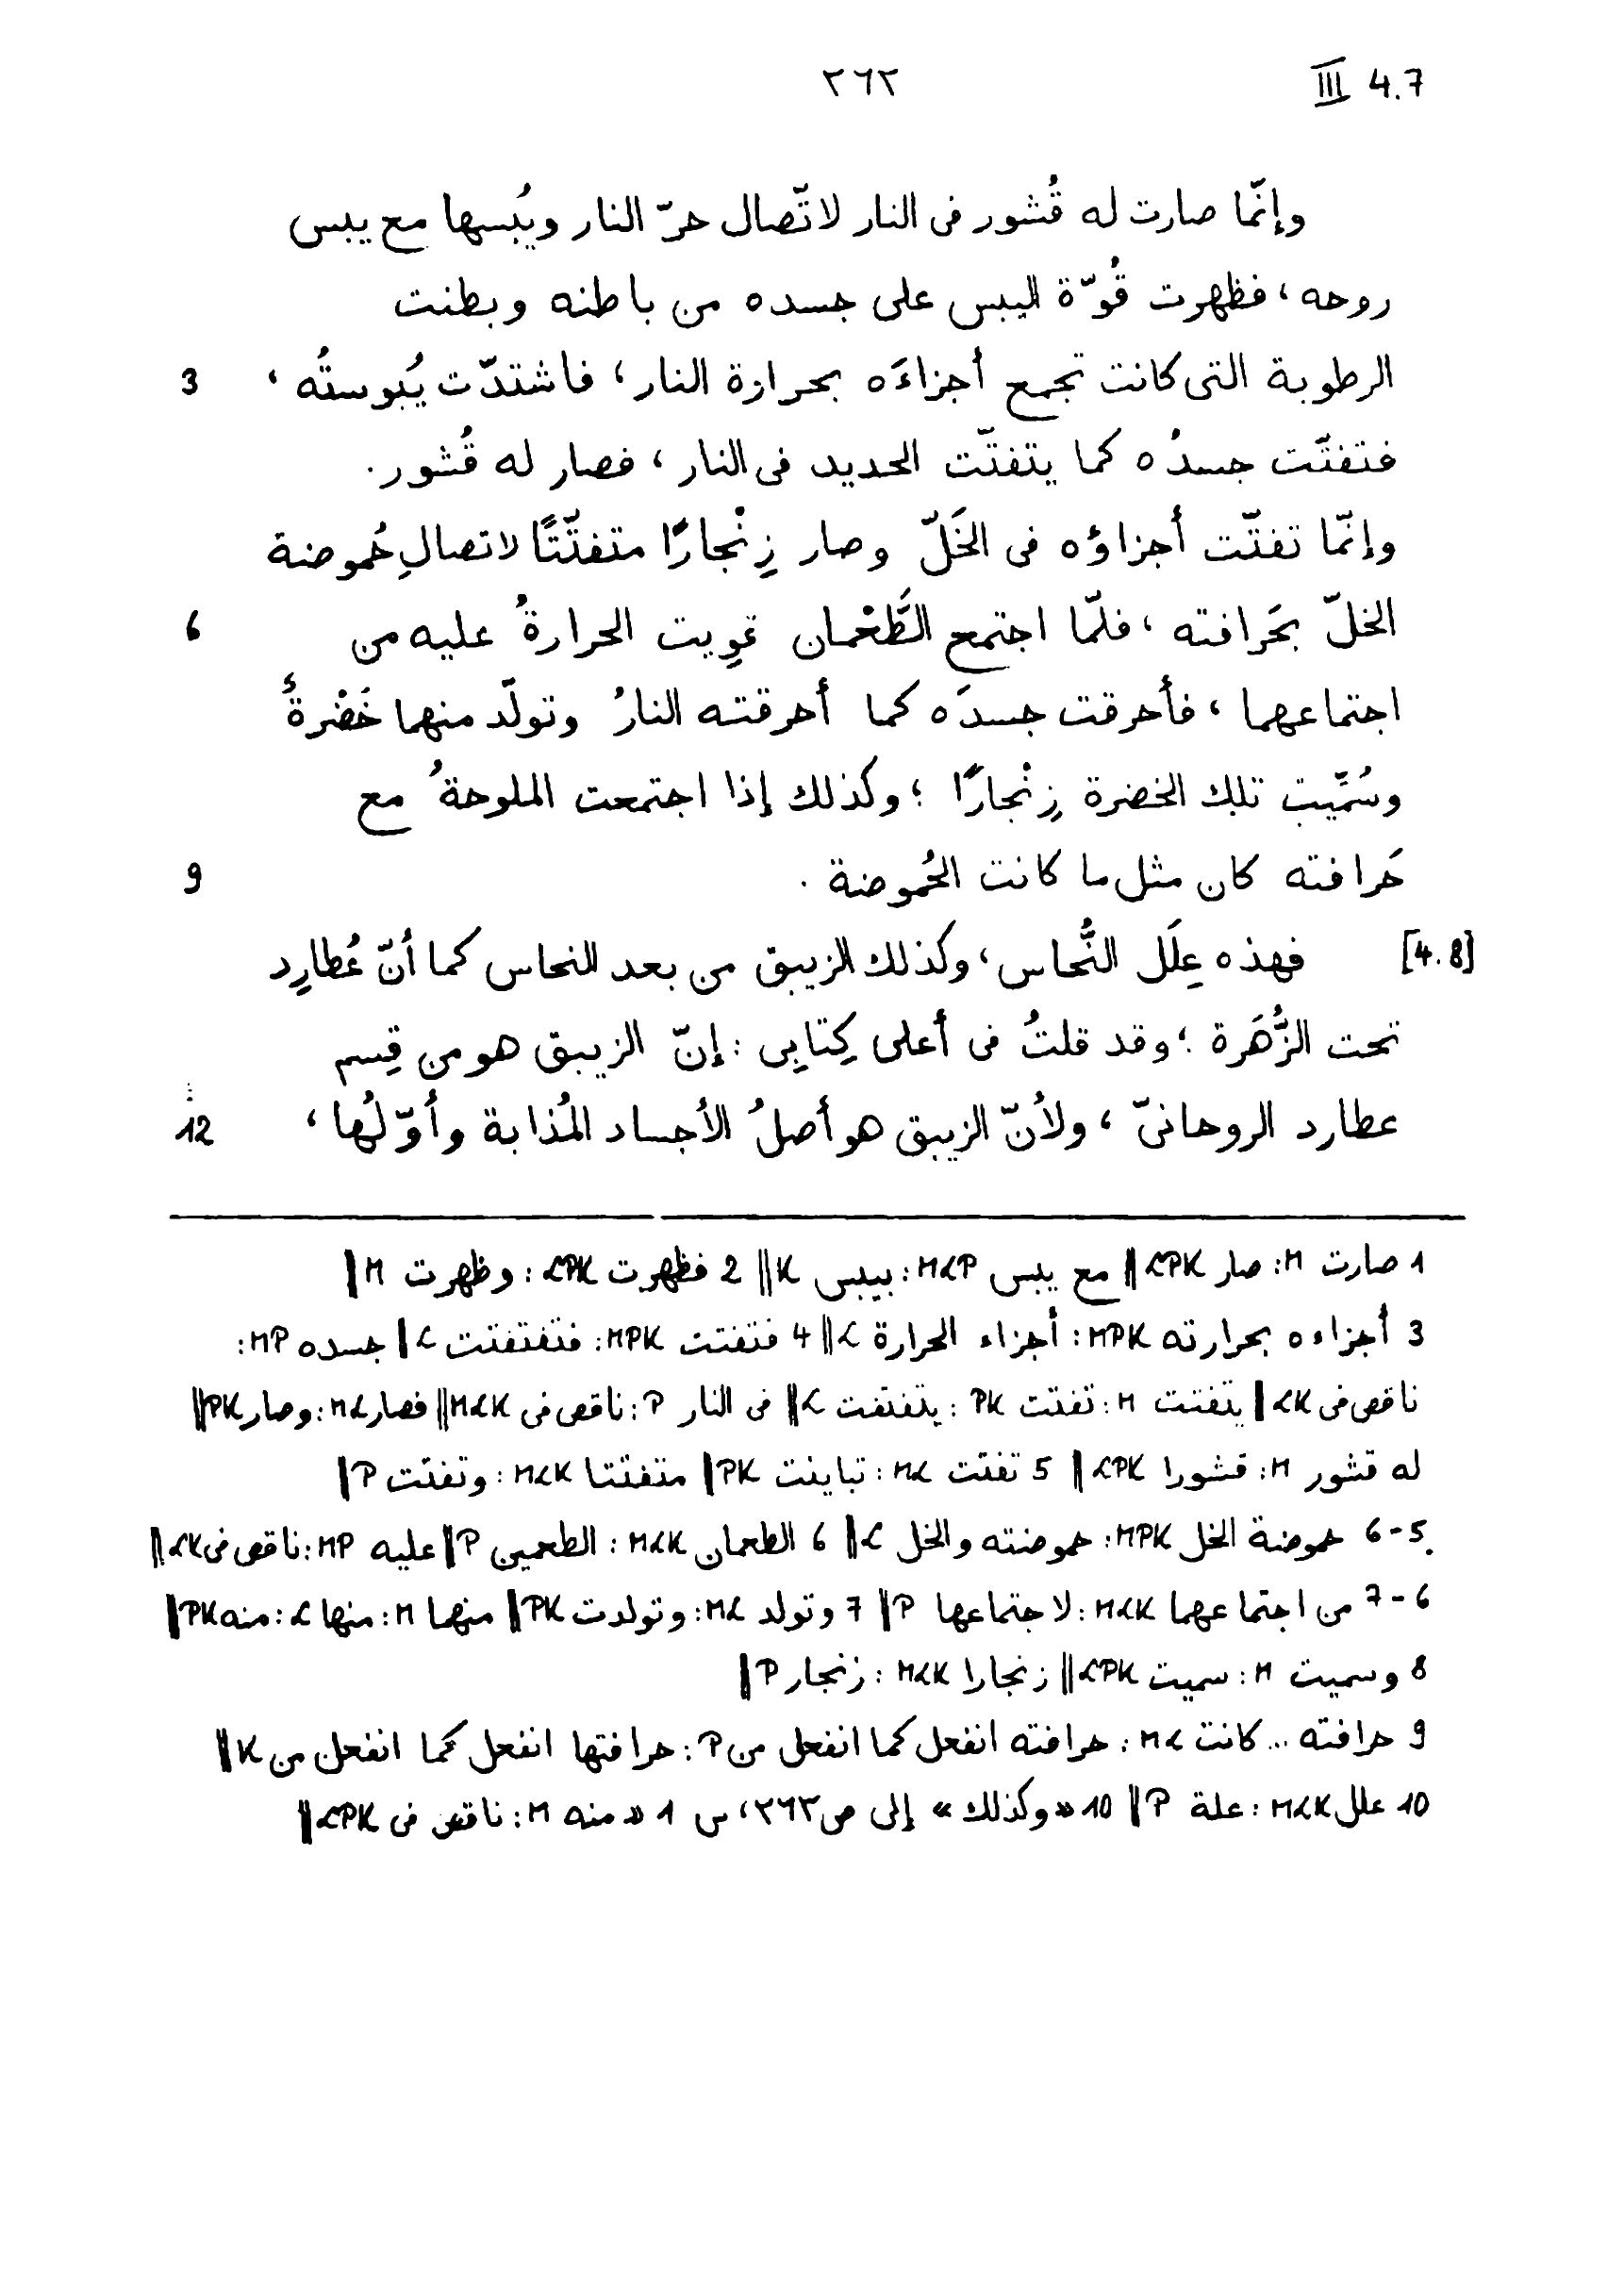 III 4.7 ٢٦٢
وإنّما صارت له قُشور فى النار لاتّصال حرّ النار ويُبسها مع يبس
روحه، فظهرت قُوّة اليبس على جسده من باطنه وبطنت
الرطوبة التى كانت تجمع أجزاءَه بحرارة النار، فاشتدّت يُبوستُه، 3
فتفتّت جسدُه كما يتفتّت الحديد فى النار، فصار له قُشور.
وإنّما تفتّت أجزاؤه فى الخَلّ وصار زِنْجارًا متفتّتًا لاتصالِ حُموضة
الخلّ بحَرافته، فلمّا اجتمع الطَّعْمان قوِيت الحرارةُ عليه من 6
اجتماعهما، فأحرقت جسدَه كما أحرقته النارُ وتولّد منهما خَضْرةٌ
وسُمّيت تلك الخضرة زِنْجارًا؛ وكذلك إذا اجتمعت الملوحةُ مع
حَرافته كان مثل ما كانت الحُموضة. 9
[4.8] فهذه عِلَل النُّحاس، وكذلك الزيبق من بعد النحاس كما أنّ عُطارِد
تحت الزُّهَرة؛ وقد قلتُ فى أعلى كِتابِى: إنّ الزيبق هو من قِسم
عطارد الروحانىّ، ولأنّ الزيبق هو أصلُ الأجساد المُذابة وأوّلُها، 12
1 صارت M: صار LPK ‖ مع يبس MLP: بيبس K ‖ 2 فظهرت LPK: وظهرت M ‖
3 أجزاءه بحرارته MPK: أجزاء الحرارة L ‖ 4 فتفتت MPK: فتفتفتت L ‖ جسده MP:
ناقص فى LK ‖ يتفتت M: تفتت PK: يتفتفت L ‖ فى النار P: ناقص فى MLK ‖ فصار ML: وصار PK ‖
له قشور M: قشورا LPK ‖ 5 تفتّت ML: تباينت PK ‖ متفتّتا MLK: وتفتّت P ‖
5-6 حموضة الخل MPK: حموضته والخل L ‖ 6 الطعمان MLK: الطعمين P ‖ عليه MP: ناقص فى LK ‖
6-7 من اجتماعهما MLK: لاجتماعها P ‖ 7 وتولد ML: وتولدت PK ‖ منهما M: منها L: منه PK ‖
8 وسميت M: سميت LPK ‖ زنجارا MLK: زنجار P ‖
9 حرافته ... كانت ML: حرافته انفعل كما انفعل من P: حرافتها انفعل كما انفعل من K ‖
10 علل MLK: علة P ‖ 10 «وكذلك» إلى ص ٢٦٣، س 1 «منه M: ناقص فى LPK ‖